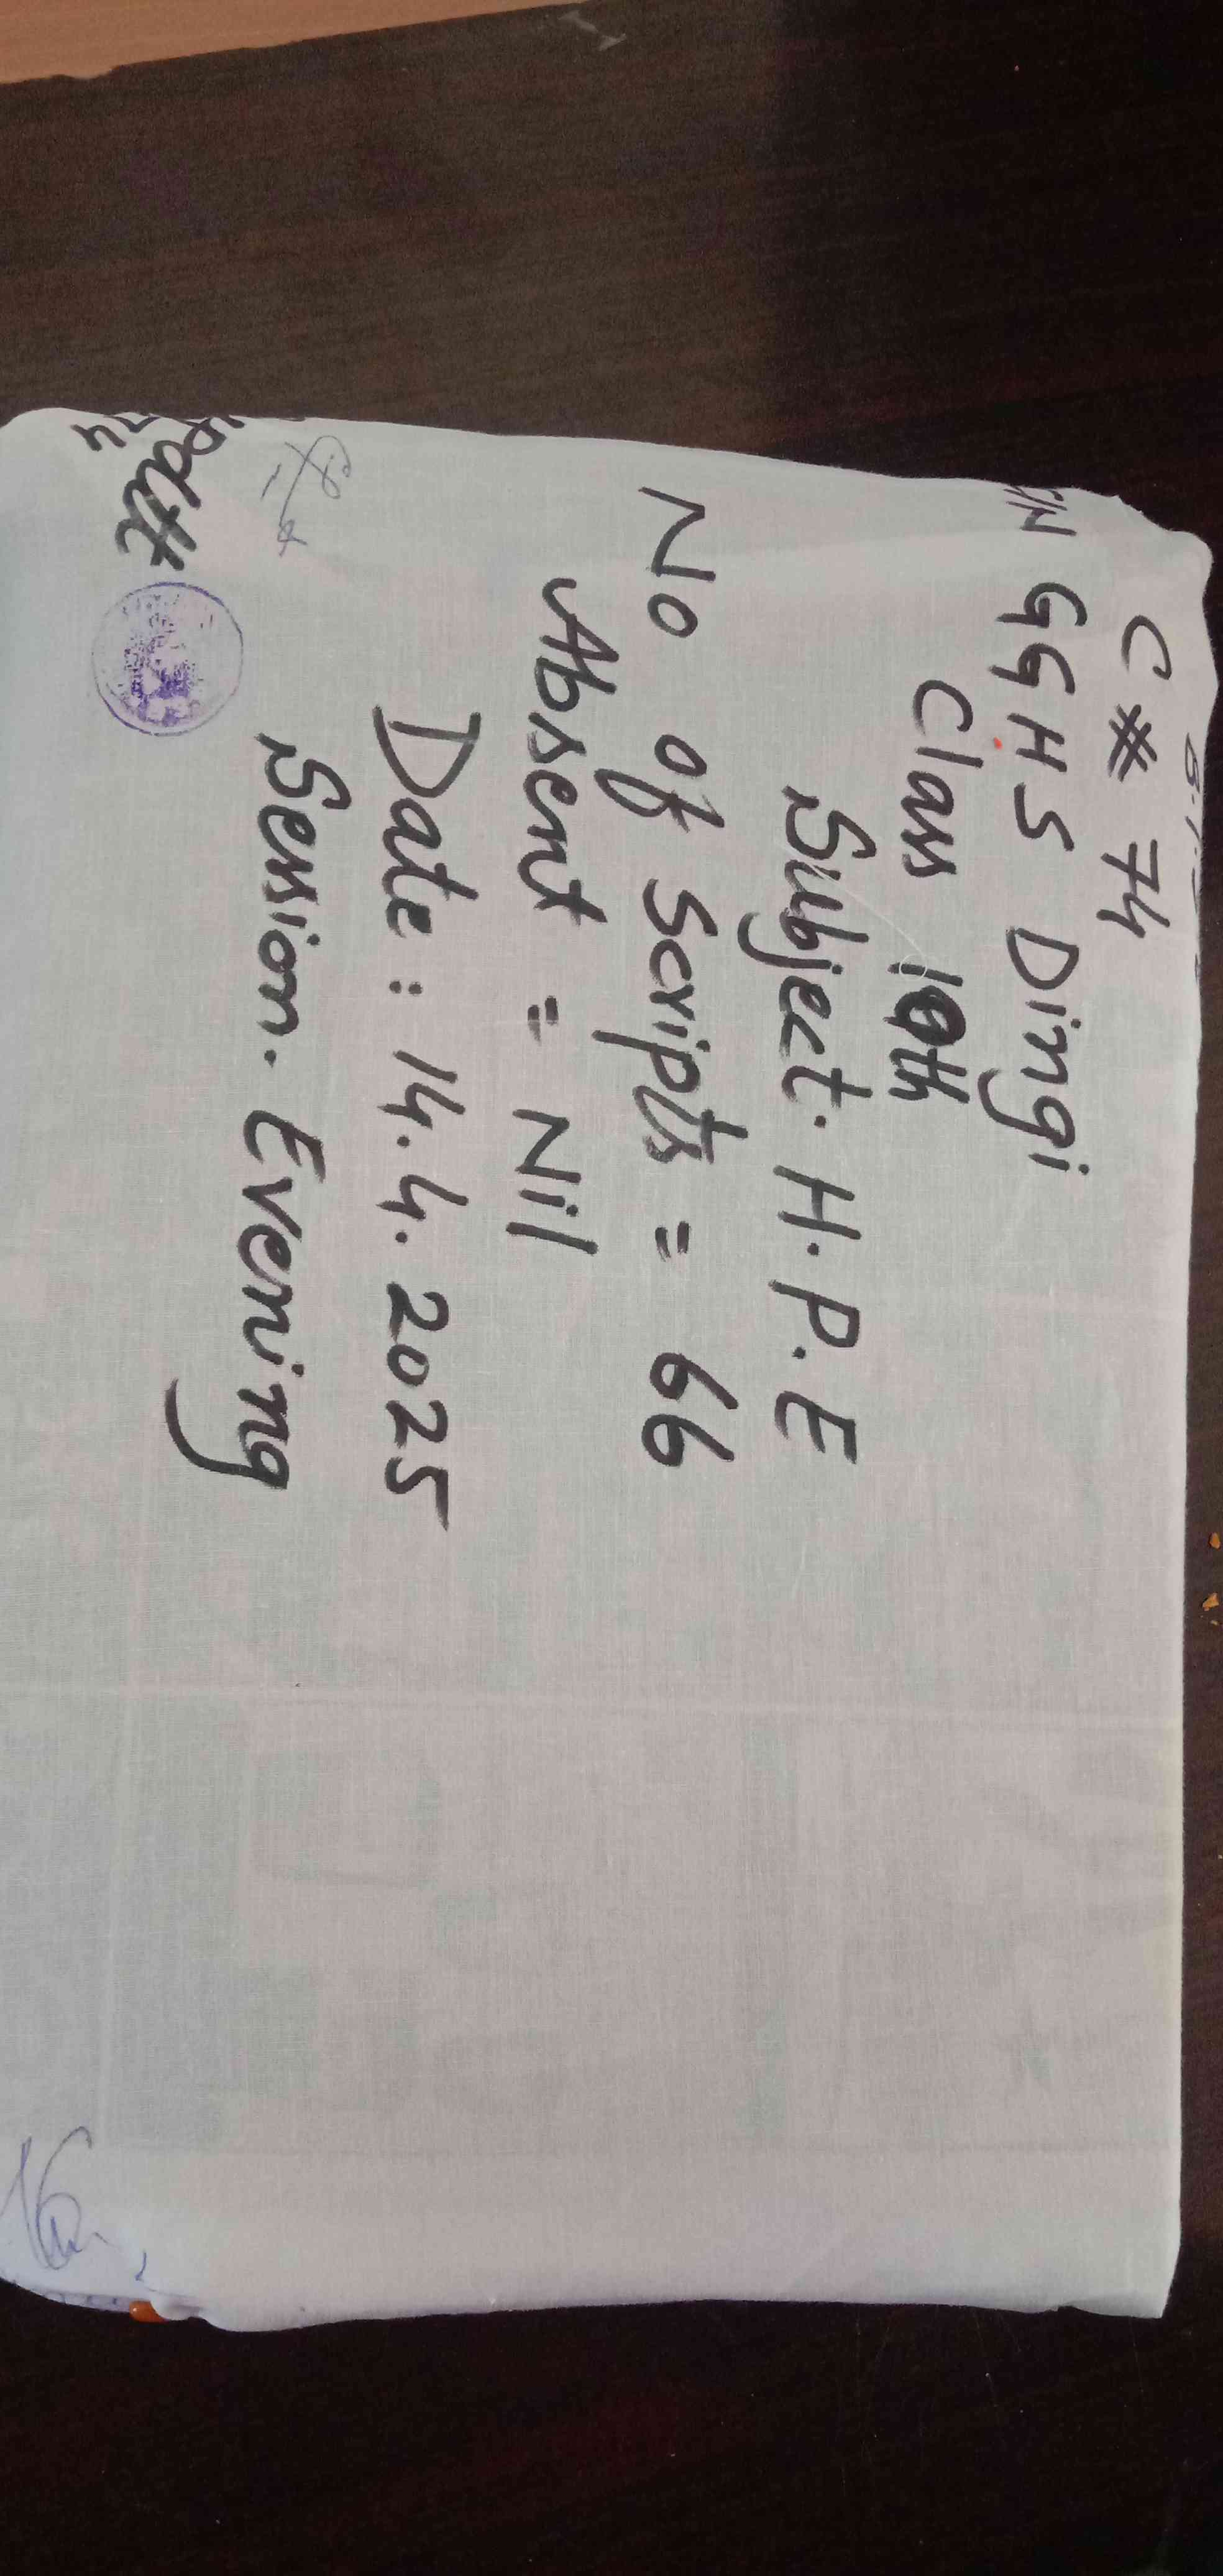 C # 74
GGHS Dingi
Class 10th
Subject. H.P.E
No of Scripts = 66
Absent = Nil
Date : 14.4.2025
Session. Evening
74